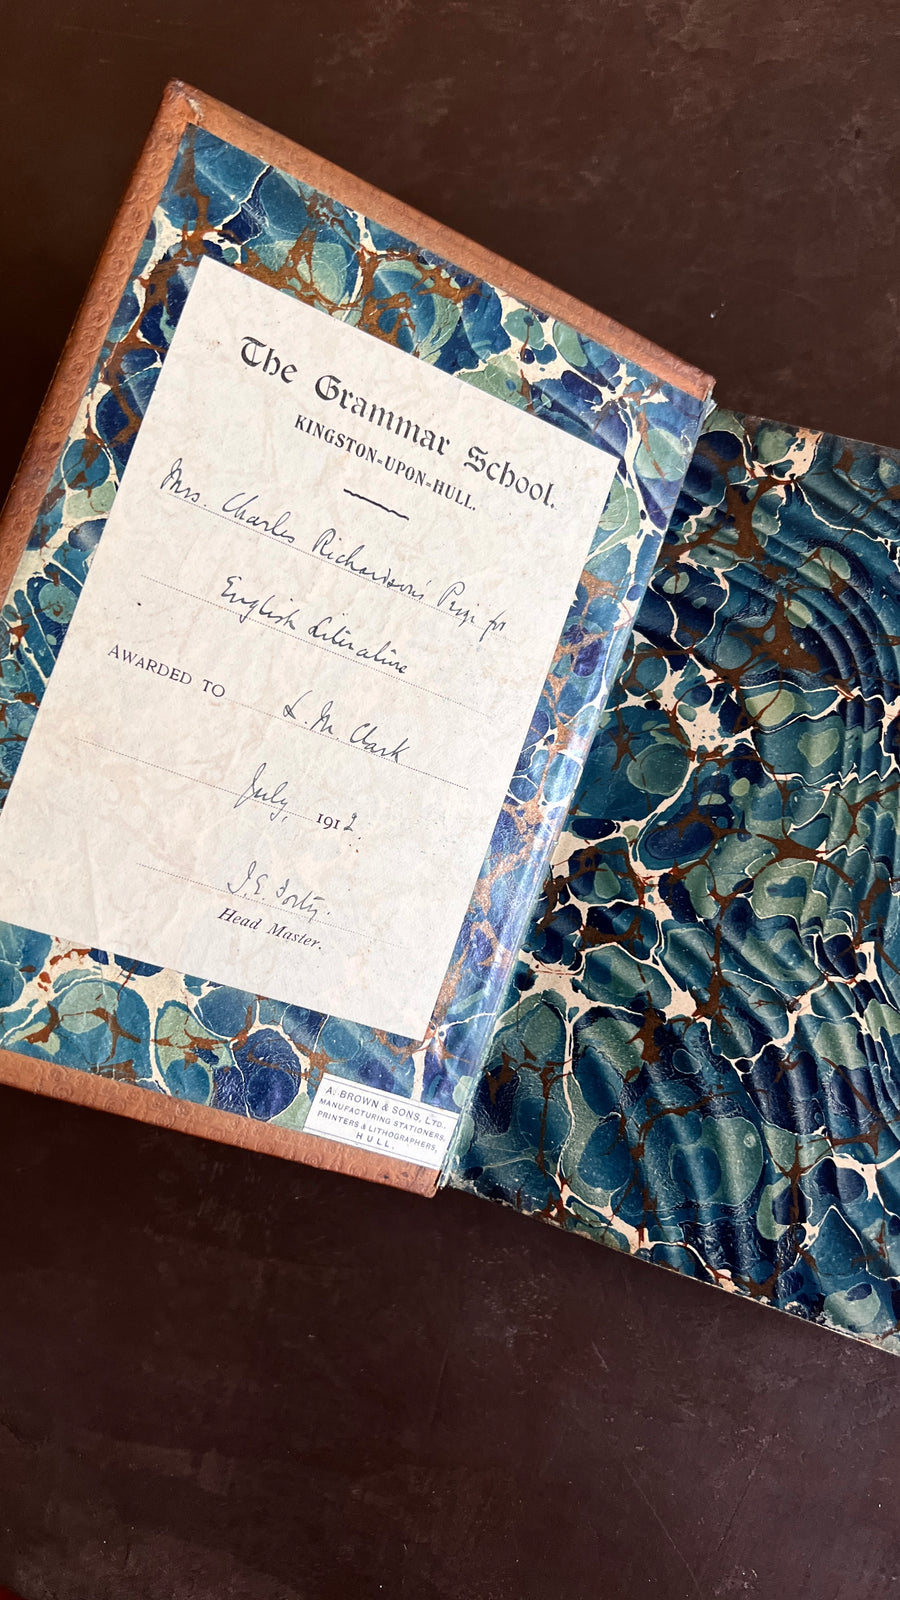 The Grammar School.
KINGSTON-UPON-HULL.
Mrs. Charles Richardson's Prize for
English Literature
AWARDED TO
L. M. Clark
July, 1912.
J. E. Forty.
Head Master.
A. BROWN & SONS, LTD.,
MANUFACTURING STATIONERS,
PRINTERS & LITHOGRAPHERS,
HULL.